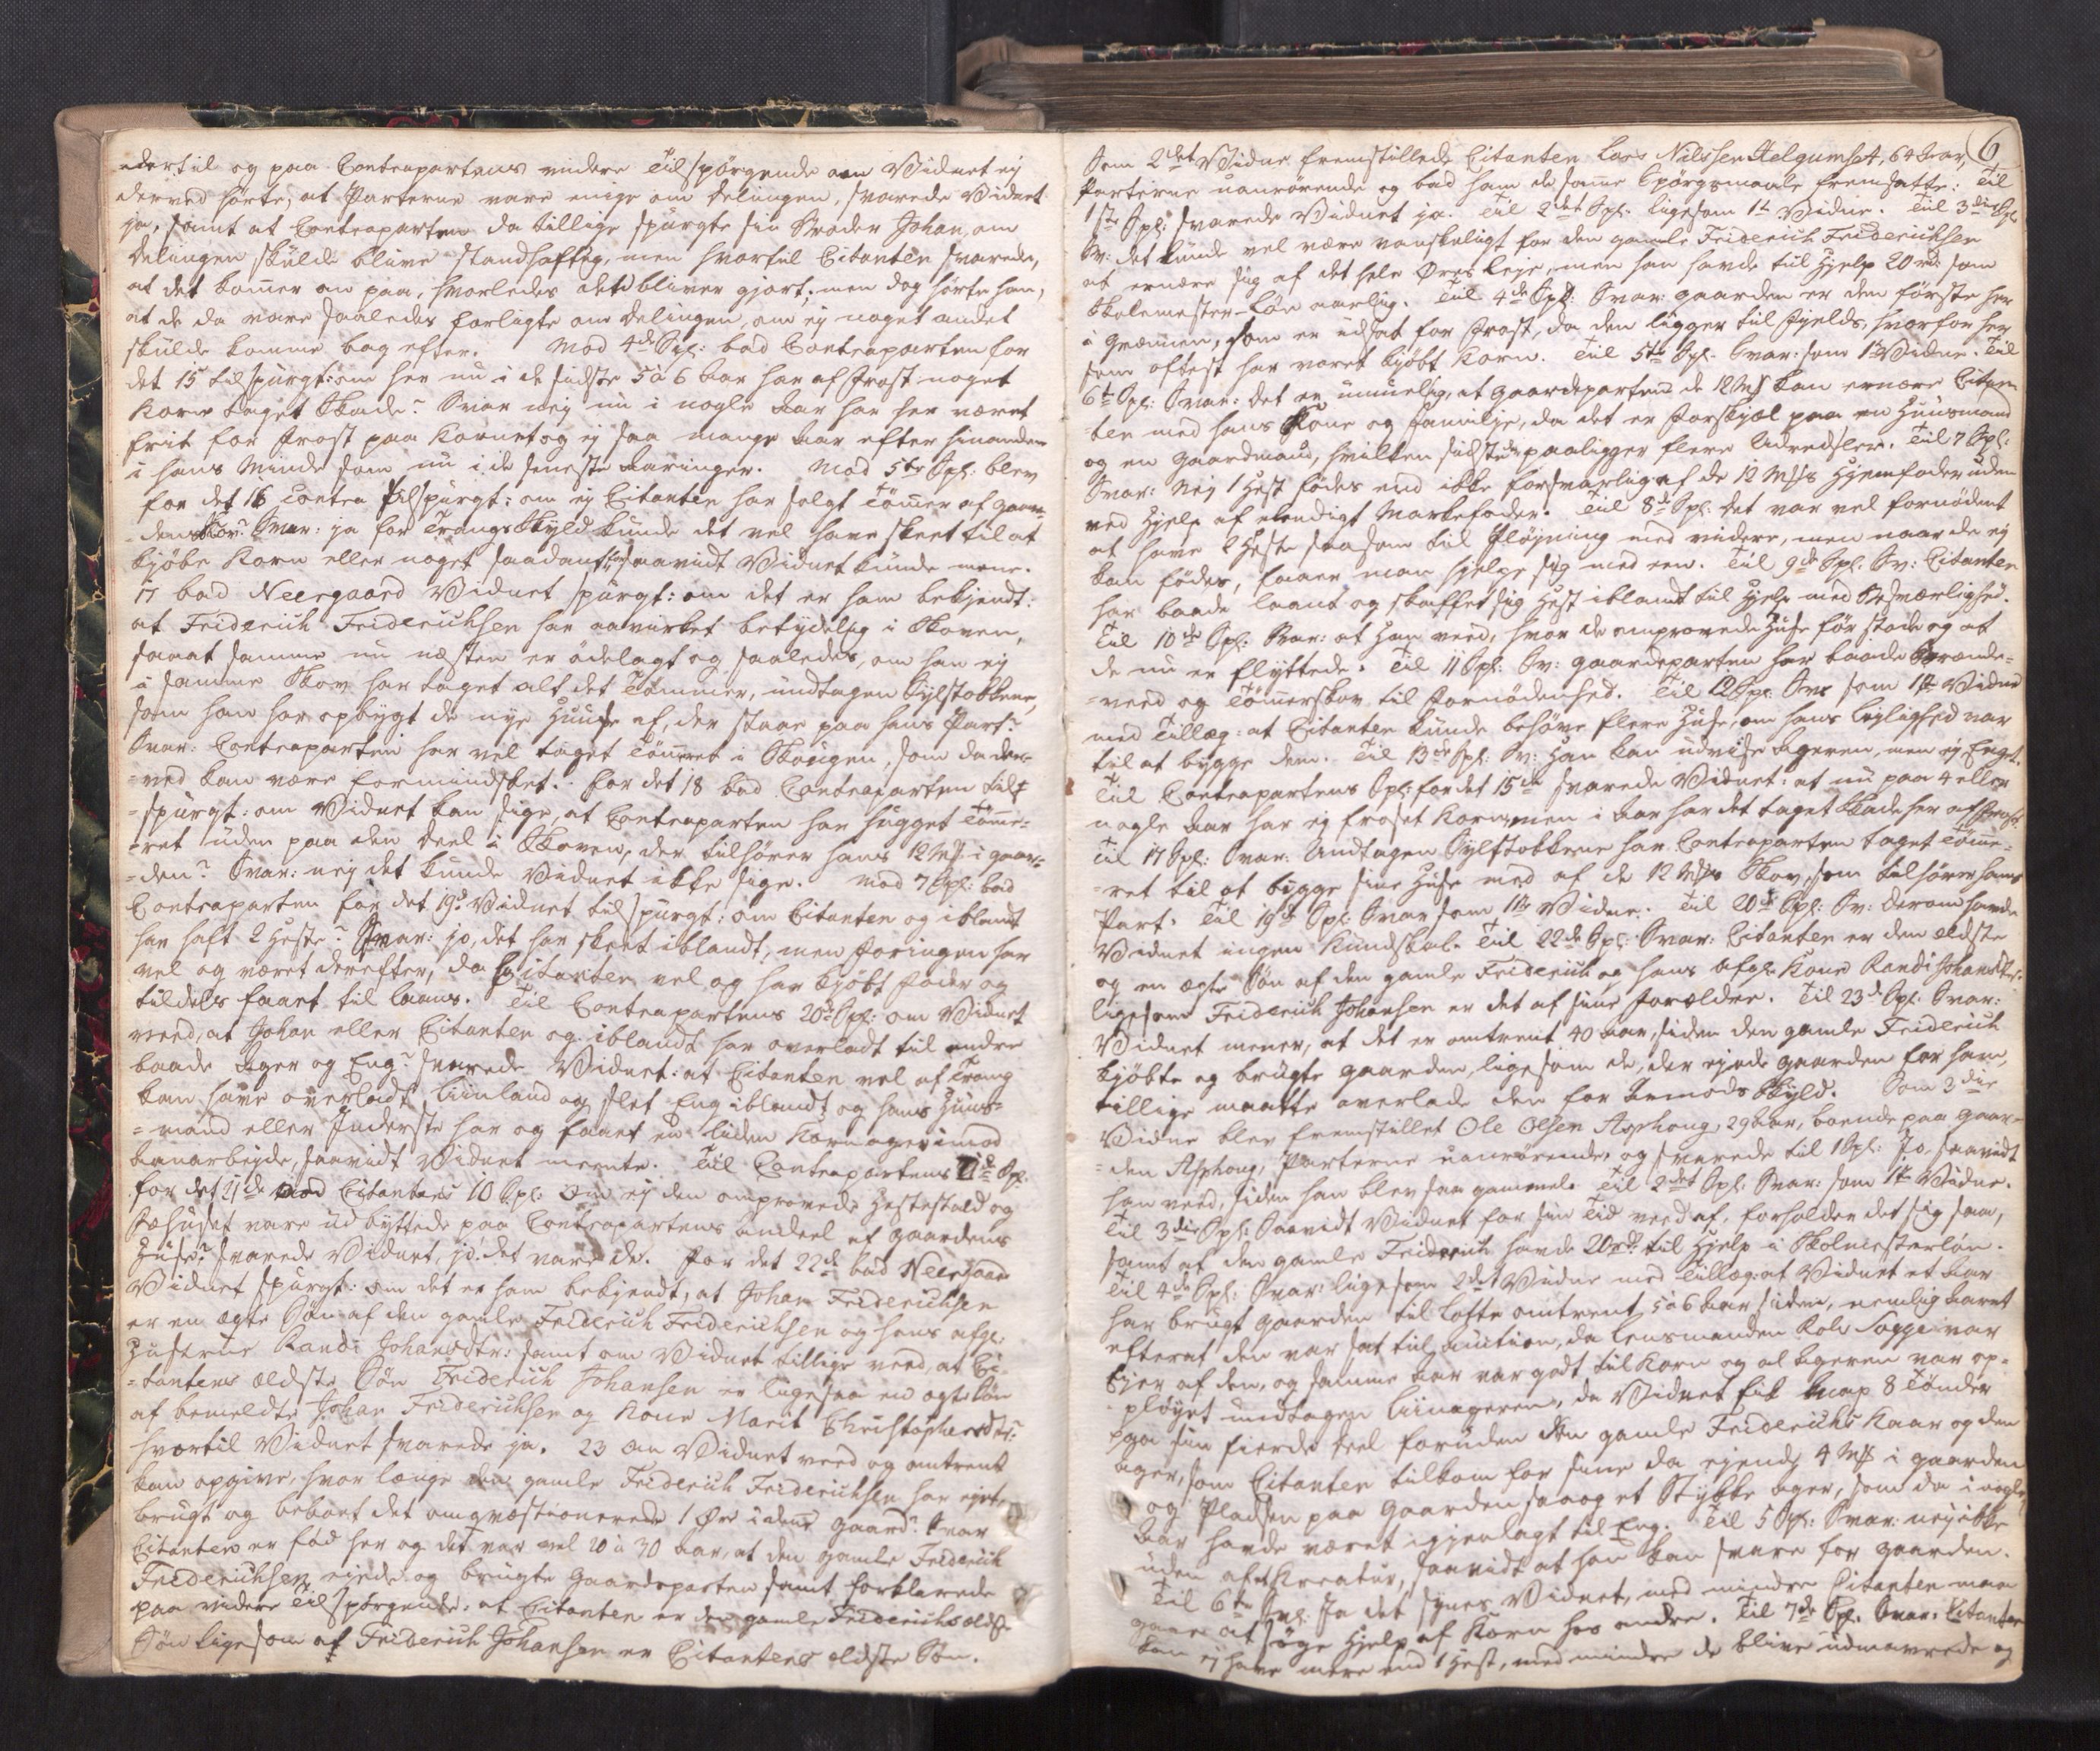 dertil og paa Contrapartens videre Tilspørgende om Vidnet ej
derved hørte, at Parterne vare enige om Delingen, svarede Vidnet
ja, samt at Contraparten da tillige spurgte sin Broder Johan, om
Delingen skulde blive standhaftig, men hvortil Citanten svarede,
at det kommer an paa, hvorledes det bliver gjort; men dog hørte han,
at de da vare saaledes forligte om Delingen, om ej noget andet
skulde komme bag efter. Mod 4de Spl: bad Contraparten for
det 15 tilspurgt: om her nu i de sidste 5 a 6 Aar har af Frost noget
Korn taget Skade? Svar nej nu i nogle Aar har her været
frit for Frost paa Kornet og ej saa mange Aar efter hinanden
i hans Minde som nu i de seneste Aaringer. Mod 5te Spl: blev
for det 16 Contra tilspurgt: om ej Citanten har solgt Tømmer af Gaar-
dens Skov? Svar: ja for Trangs Skyld kunde det vel have skeet til at
kjøbe Korn eller noget saadant for, saavidt Vidnet kunde mene.
17 bad Neergaard Vidnet spurgt: om det er ham bekjendt:
at Friderich Friderichsen har avirket betydelig i Skoven,
saa at samme nu næsten er ødelagt og saaledes, om han ej
i samme Skov har taget alt det Tømmer, undtagen Sylstokkene,
som han har opbygt de nye Huuse af, der staar paa hans Part?
Svar: Contraparten har vel taget Tømret i Skougen, som da der-
=ved kan være formindsket. For det 18 bad Contraparten til-
=spurgt: om Vidnet kan sige, at Contraparten har hugget Tømme=
=ret uden paa den Deel i Skoven, der tilhører hans 12 Mkl: i Gaar=
=den? Svar: nej det kunde Vidnet ikke sige. Mod 7 Spl: bad
Contraparten for det 19de Vidnet tilspurgt: om Citanten og iblandt
har haft 2 Heste? Svar: jo, det har skeet iblandt, men Foringen har
vel og været derefter, da Citanten vel og har kjøbt Foder og
tildels faaet til laans. Til Contrapartens 20de Spl: om Vidnet
veed, at Johan eller Citanten og iblandt har overladt til andre
baade Ager og Eng? svarede Vidnet: at Citanten vel af Trang
kan have overladt Liinland og slet Eng iblandt og hans Huus=
=mand eller Inderste har og faaet en liden Kornager imod
Aanarbejde, saavidt Vidnet meente. Til Contrapartens Spl:
for det 21de mod Citantens 10 Spl: om ej den omprovede Hestestald og
Fæhuset vare udbyttede paa Contrapartens Andeel af Gaardens
Huse? svarede Vidnet, jo! det vare de. For det 22de bad Neergaard
Vidnet spurgt: om det er ham bekjendt, at Johan Friderichsen
er en ægte Søn af den gamle Friderich Friderichsen og hans afg:
Hustrue Randi Johansdtr: samt om Vidnet tillige veed, at Ci-
=tantens ældste Søn Friderich Johansen er ligesaa en ægte Søn
af bemeldte Johan Friderichsen og Kone Marit Christophersdtr:?
hvortil Vidnet svarede ja. 23 om Vidnet veed og omtrent
kan opgive, hvor længe den gamle Friderich Friderichsen har ejet,
brugt og beboet det omqvæstionerede 1 Øre i denne Gaard? Svar
Citanten er fød her og det var vel 20 à 30 Aar, at den gamle Friderich
Friderichsen ejede og brugte Gaardsparten samt forklarede
paa videre Tilspørgende: at Citanten er den gamle Friderichs ældste
Søn ligesom at Friderich Johansen er Citantens eldste Søn.
6
Som 2det Vidne fremstillede Citanten Lars Nilssen Helgumsæt, 64 Aar,
Parterne uanrørende og bad ham de samme Spørgsmaale fremsatte: Til
1ste Spl: svarede Vidnet ja. Til 2det Spl: ligesom 1te Vidne. Til 3die Spl:
Sv: det kunde vel være vanskeligt for den gamle Friderich Friderichsen
at ernære sig af det hele Øres leje, men han havde til Hjelp 20 rd: som
Skolemester-Løn aarlig. Til 4de Spl: Svar: Gaarden er den første her
i Grænnen, som er udsat for Frost, da den ligger til Fjelds, hvorfor her
som oftest har været kjøbt Korn. Til 5te Spl: Svar: som 1te Vidne. Til
6te Spl: Svar: det er umuelig, at Gaardsparten de 12 Mkl kan ernære Citan-
ten med hans Kone og Familje, da det er Forskjæl paa en Huusmand
og en Gaardmand, hvilken sidste paaligger flere Udredsler. Til 7 Spl:
Svar: Nej 1 Hest fødes end ikke forsvarlig af de 12 Mkls Hjemfoder uden
ved Hjelp af elendigt Markefoder. Til 8de Spl: det var vel fornødent
at have 2 Heste saasom til Pløjning med videre, men naar de ej
kan fødes, faaer man hjelpe sig med een. Til 9de Spl: Sv: Citanten
har baade laant og skaffet sig Hest iblandt til Hjelp med Besværlighed.
Til 10de Spl: Svar: at han veed, hvor de omprovede Huse før stode og at
de nu er flyttede. Til 11 Spl: Sv: Gaardsparten har baade Brænde=
=veed og Tømmerskov til Fornødenhed. Til 12 Spl: Svr som 1te Vidne
med Tillæg: at Citanten kunde behøve flere Huse, om hans Leylighed var
til at bygge dem. Til 13de Spl: Sv: Han kan udvise Ageren, men ej Enget.
Til Contrapartens Spl: for det 15de svarede Vidnet: at nu paa 4 eller
nogle Aar har ej froset Korn, men i Aar har det taget Skade her af Frost.
Til 17 Spl: Svar: Undtagen Sylstokkene har Contraparten taget Tømme=
=ret til at bygge sine Huse med af de 12 Mkls Skov, som tilhører hans
Part. Til 19de Spl: Svar som 1te Vidne. Til 20de Spl: Sv: derom havde
Vidnet ingen Kundskab. Til 22de Spl: Svar: Citanten er den ældste
og en ægte Søn af den gamle Friderich og hans afg: Kone Randi Johansdtr:
ligesom Friderich Johansen er det af sine Forældre. Til 23de Spl: Svar:
Vidnet mener, at det er omtrent 40 Aar, siden den gamle Friderich
kjøbte og brugte Gaarden, ligesom de, der ejede Gaarden for ham,
tillige maatte overlade den for Armods Skyld. Som 3die
Vidne blev fremstillet Ole Olsen Asphoug, 29 Aar, boende paa Gaar=
=den Asphoug, Parterne uanrørende, og svarede til 1 Spl: Jo, saavidt
han veed, siden han blev saa gammel. Til 2det Spl: Svar: som 1te Vidne.
Til 3die Spl: Saavidt Vidnet for sin Tid veed af, forholder det sig saa,
samt at den gamle Friderich havde 20 rd: til Hjelp i Skolmesterløn.
Til 4de Spl: Svar: ligesom 2det Vidne med Tillæg: at Vidnet et Aar
har brugt Gaarden til Lotte omtrent 5 a 6 Aar siden, nemlig Aaret
efterat den var sat til Auction, da Lensmanden Rolv Sogge var
Ejer af den, og samme Aar var godt til Korn og al Ageren var op-
pløyet undtagen Liinageren, da Vidnet fik knap 8 Tønder
paa sin fierde Deel foruden den gamle Friderichs Kaar og den
Ager, som Citanten tilkom for sine da ejende 4 Mkl i Gaarden
og Pladsen paa Gaarden saa og et Stykke Ager, som da i nogle
Aar havde været igjenlagt til Eng. Til 5 Spl: Svar: nej ikke
uden af Kreatur, saavidt at han kan svare for Gaarden.
Til 6te Spl: Ja det synes Vidnet, med mindre Citanten maa
gaae at søge Hjelp af Korn hos andre. Til 7de Spl: Svar: Citanten
kan ej have mere end 1 Hest, med mindre de blive udmavrede og